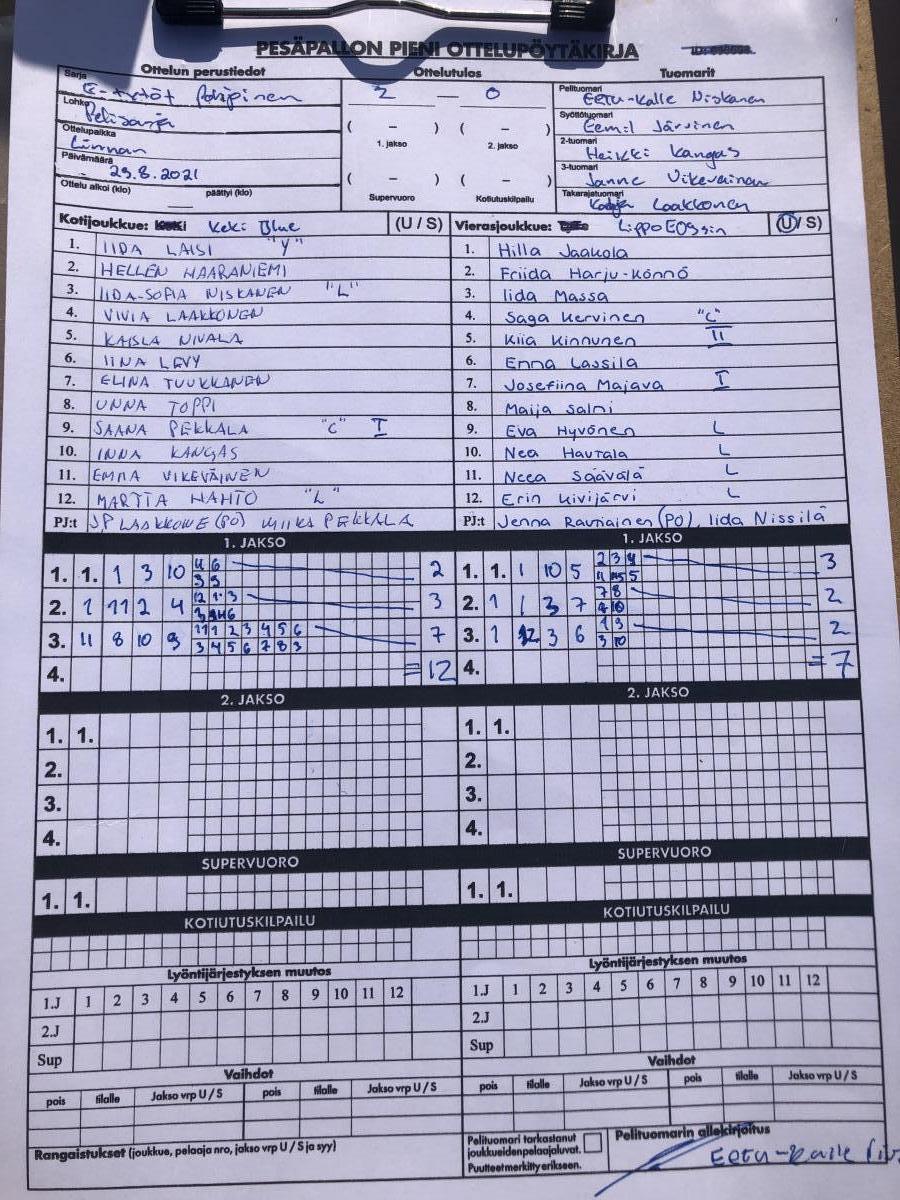 PESÄPALLON PIENI OTTELUPÖYTÄKIRJA
Ottelun perustiedot
Ottelutulos
Tuomarit
Sarja
E-tytöt Pohjoinen
Lohko
Pelisarja
Ottelupaikka
Linnan
Päivämäärä
29.8.2021
Ottelu alkoi (klo) päättyi (klo)
2 — 0
( – ) ( – )
1. jakso 2. jakso
( – ) ( – )
Supervuoro Kotiutuskilpailu
Pelituomari
Eetu-Kalle Niskanen
Syöttötuomari
Eemil Järvinen
2-tuomari
Heikki Kangas
3-tuomari
Janne Vikeväinen
Takarajatuomari
Laakkonen
Kotijoukkue: Keki Blue (U / S)
1. IIDA LAISI "Y"
2. HELLEN HAARANIEMI
3. IIDA-SOFIA NISKANEN "L"
4. VIVIA LAAKKONEN
5. KAISLA NIVALA
6. IINA LEVY
7. ELINA TUUKKANEN
8. UNNA TOPPI
9. SAANA PEKKALA "C" I
10. INNA KANGAS
11. EMMA VIKEVÄINEN
12. MARTTA HAHTO "L"
PJ:t JP LAAKKONE (PO) MIIKA PEKKALA
Vierasjoukkue: Lippo EOSsin (U / S)
1. Hilla Jaakola
2. Friida Harju-Könnö
3. Iida Massa
4. Saga Kervinen "C"
5. Kiia Kinnunen II
6. Enna Lassila
7. Josefiina Majava I
8. Maija Salmi
9. Eva Hyvönen L
10. Nea Hautala L
11. Neea Säävälä L
12. Erin Kivijärvi L
PJ:t Jenna Rautiainen (PO), Iida Nissilä
1. JAKSO
1. 1. 1 3 10 4 6 2
3 5
2. 1 11 2 4 12 1 3 3
3. 11 8 10 9 11 1 2 3 4 5 6 7
3 4 5 6 7 8 3
4. =12
1. JAKSO
1. 1. 1 10 5 2 3 4 3
2. 1 1 3 7 7 8 2
3. 1 12 3 6 1 3 2
3 10
4. =7
2. JAKSO
1. 1.
2.
3.
4.
2. JAKSO
1. 1.
2.
3.
4.
SUPERVUORO
1. 1.
SUPERVUORO
1. 1.
KOTIUTUSKILPAILU
KOTIUTUSKILPAILU
Lyöntijärjestyksen muutos
1.J 1 2 3 4 5 6 7 8 9 10 11 12
2.J
Sup
Lyöntijärjestyksen muutos
1.J 1 2 3 4 5 6 7 8 9 10 11 12
2.J
Sup
Vaihdot
pois tilalle Jakso vrp U / S pois tilalle Jakso vrp U / S
Vaihdot
pois tilalle Jakso vrp U / S pois tilalle Jakso vrp U / S
Rangaistukset (joukkue, pelaaja nro, jakso vrp U / S ja syy)
Pelituomari tarkastanut
joukkueiden pelaajaluvat.
Puutteet merkitty erikseen.
Pelituomarin allekirjoitus
Eetu-Kalle